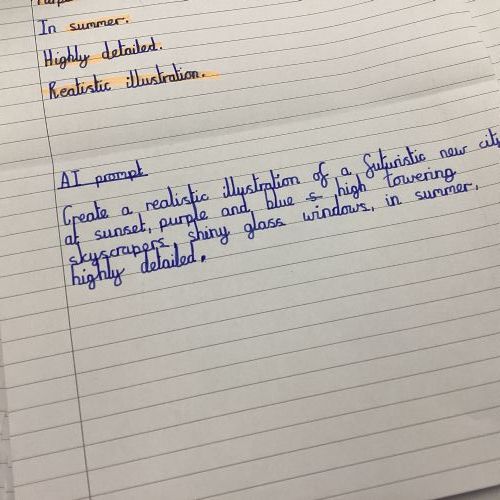 In summer.
Highly detailed.
Realistic illustration.
AI prompt
Create a realistic illustration of a futuristic new city
at sunset, purple and blue high towering
skyscrapers, shiny glass windows, in summer,
highly detailed.